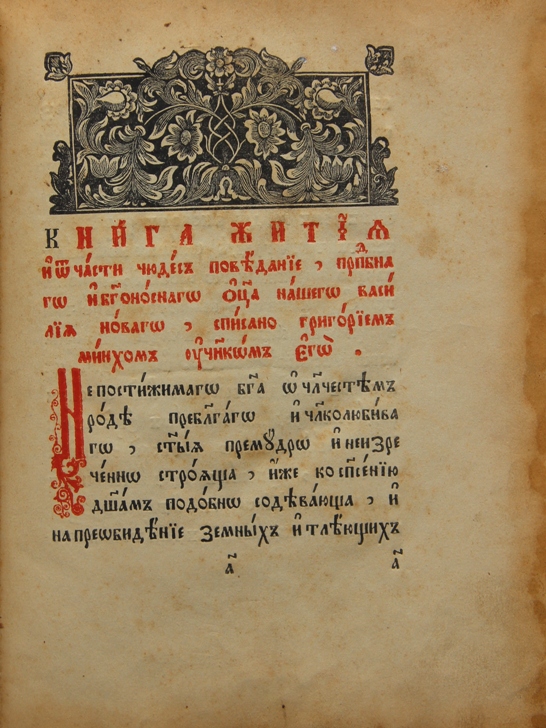 КНИ́ГА ЖИТІѦ̀
и҆ ѿ ча́сти чюде́съ повѣ́данїе , прпⷣбна
гѡ и҆ бг҃оно́снагѡ ѻ҆ц҃а на́шегѡ васи́
лїѧ но́вагѡ , спи́сано григо́рїемъ
мни́хомъ ᲂу҆ч҃нкѡ́мъ є҆гѡ̀ .
Непостижи́магѡ бг҃а ѡ҆ чл҃честѣ́мъ
ро́дѣ пребл҃га́гѡ и҆ чл҃колюби́ва
гѡ , ст҃ы́ѧ премꙋ́дрѡ и҆ неизре
че́ннѡ строѧ́ща , и҆́же ко сп҃се́нїю
дш҃а́мъ подо́бнѡ содѣва́юща , и҆
на преѡби́дѣнїе земны́хъ и҆ тлѣ́ющихъ
а҃ а҃